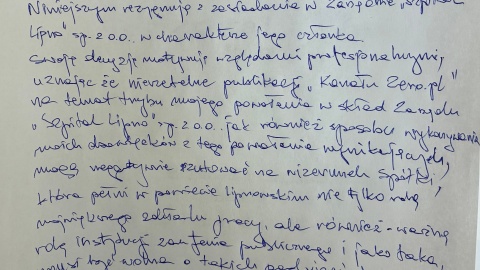 Niniejszym rezygnuję z zasiadania w Zarządzie „Szpital
Lipno" sp. z o.o. w charakterze jego członka
swoją decyzję motywuję względami profesjonalnymi,
uznając że nierzetelne publikacje „Kanału Zero.pl"
na temat trybu mojego powołania w skład Zarządu
„Szpital Lipno" sp. z o.o. jak również sposobu wykonywania
moich obowiązków z tego powołania wynikających,
mogą negatywnie rzutować na wizerunek Spółki,
która pełni w powiecie lipnowskim nie tylko rolę
największego zakładu pracy, ale również - ważną
rolę instytucji zaufania publicznego i jako taka,
musi być wolna o takich